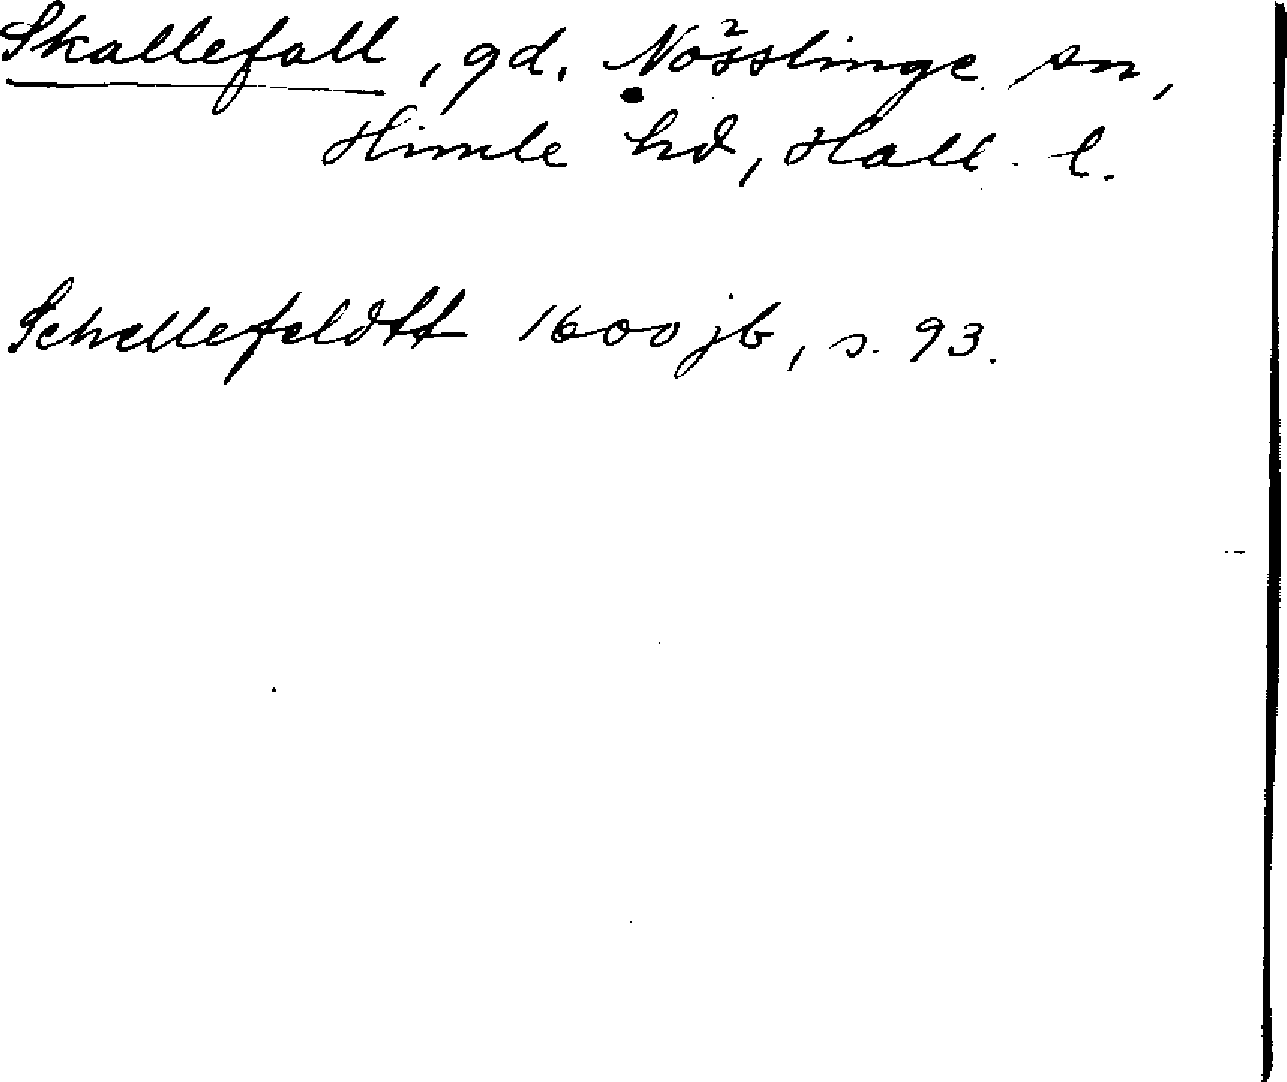 Skallefall, gd. Nösslinge sn,
Himle hd, Hall. l.
Schellefeldtt 1600 jb, s. 93.